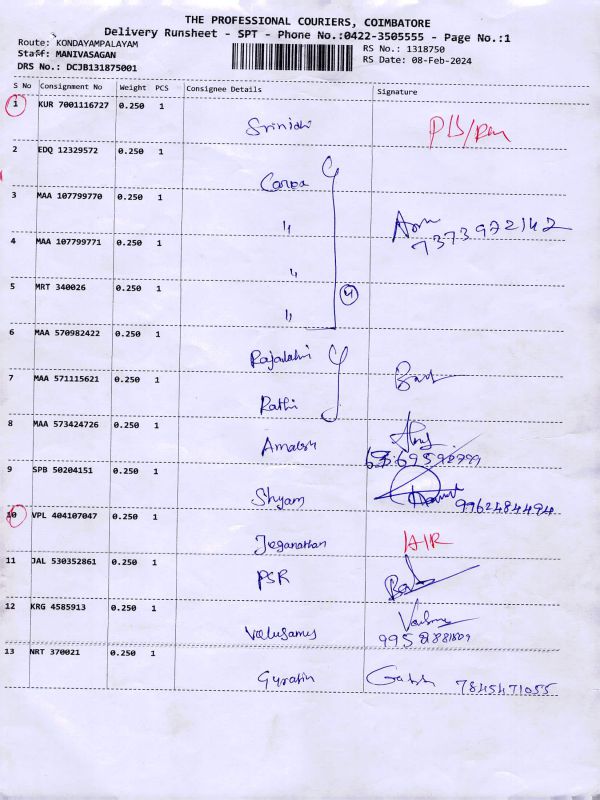 THE PROFESSIONAL COURIERS, COIMBATORE
Delivery Runsheet - SPT - Phone No.:0422-3505555 - Page No.:1
Route: KONDAYAMPALAYAM
Staff: MANIVASAGAN
DRS No.: DCJB131875001
RS No.: 1318750
RS Date: 08-Feb-2024
S No Consignment No Weight PCS Consignee Details Signature
1 KUR 7001116727 0.250 1
Srinidhi
2 EDQ 12329572 0.250 1
3 MAA 107799770 0.250 1
"
7373972142
4 MAA 107799771 0.250 1
"
5 MRT 340026 0.250 1
"
4
6 MAA 570982422 0.250 1
7 MAA 571115621 0.250 1
Rathi
8 MAA 573424726 0.250 1
9 SPB 50204151 0.250 1
Shyam
9962484494
10 VPL 404107047 0.250 1
Jeganathan
11 JAL 530352861 0.250 1
PSR
12 KRG 4585913 0.250 1
Velusamy
13 NRT 370021 0.250 1
7845471055